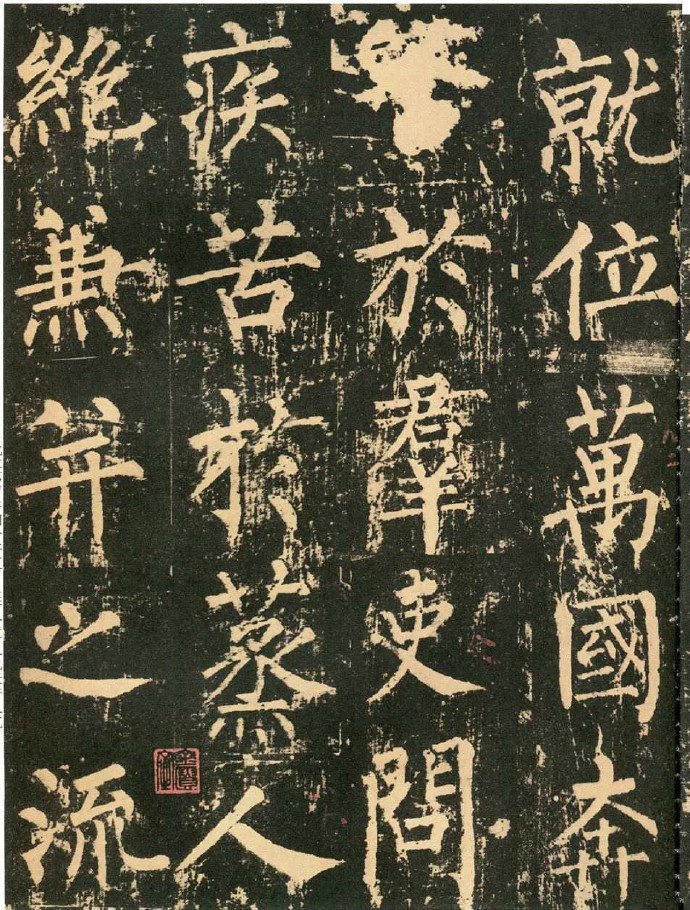 就位萬國奔
於羣吏問
疾苦於蒸人
絕兼并之流